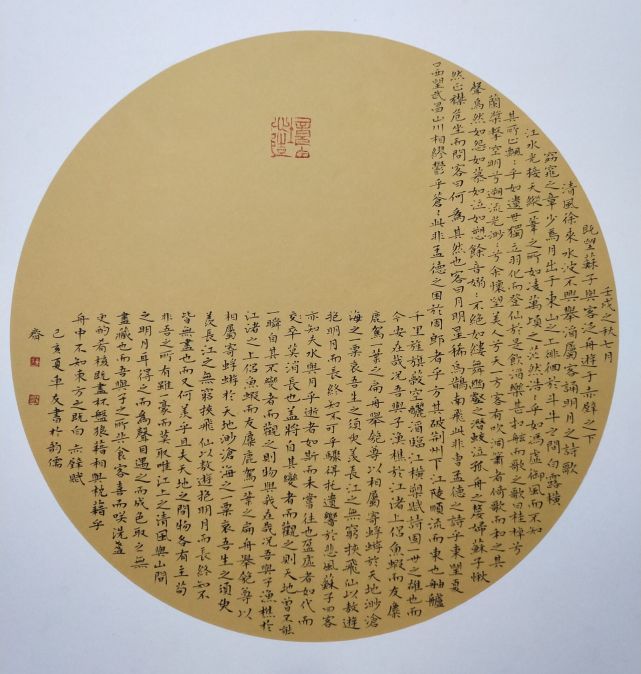 壬戌之秋七月
既望蘇子與客泛舟遊于赤壁之下
清風徐來水波不興舉酒屬客誦明月之詩歌
窈窕之章少焉月出于東山之上徘徊於斗牛之間白露橫
江水光接天縱一葦之所如凌萬頃之茫然浩〻乎如馮虛御風而不知
其所止飄〻乎如遺世獨立羽化而登仙於是飲酒樂甚扣舷而歌之歌曰桂棹兮
蘭槳擊空明兮遡流光渺〻兮余懷望美人兮天一方客有吹洞簫者倚歌而和之其
聲嗚然如怨如慕如泣如愬餘音嫋〻不絕如縷舞幽壑之潛蛟泣孤舟之嫠婦蘇子愀
然正襟危坐而問客曰何為其然也客曰月明星稀烏鵲南飛此非曹孟德之詩乎東望夏
口西望武昌山川相繆鬱乎蒼〻此非孟德之困於周郎者乎方其破荊州下江陵順流而東也舳艫
千里旌旗蔽空釃酒臨江橫槊賦詩固一世之雄也而
今安在哉況吾與子漁樵於江渚上侶魚蝦而友麋
鹿駕一葉之扁舟舉匏尊以相屬寄蜉蝣於天地渺滄
海之一粟哀吾生之須臾羨長江之無窮挾飛仙以敖遊
抱明月而長終知不可乎驟得托遺響於悲風蘇子曰客
亦知夫水與月乎逝者如斯而未嘗往也盈虛者如代而
卒莫消長也蓋將自其變者而觀之則天地曾不能
一瞬自其不變者而觀之則物與我在哉況吾與子漁樵於
江渚之上侶魚蝦而友麋鹿駕一葉之扁舟舉匏尊以
相屬寄蜉蝣於天地渺滄海之一粟哀吾生之須臾
羨長江之無窮挾飛仙以敖遊抱明月而長終知不
皆無盡也而又何羨乎且夫天地之間物各有主苟
非吾之所有雖一豪而莫取唯江上之清風與山間
之明月耳得之而為聲目遇之而成色取之無
盡藏也而吾與子之所共食客喜而咲洗盞
更酌肴核既盡杯盤狼藉相與枕藉乎
舟中不知東方之既白 赤壁賦
己亥夏車友書於韵儒
齋